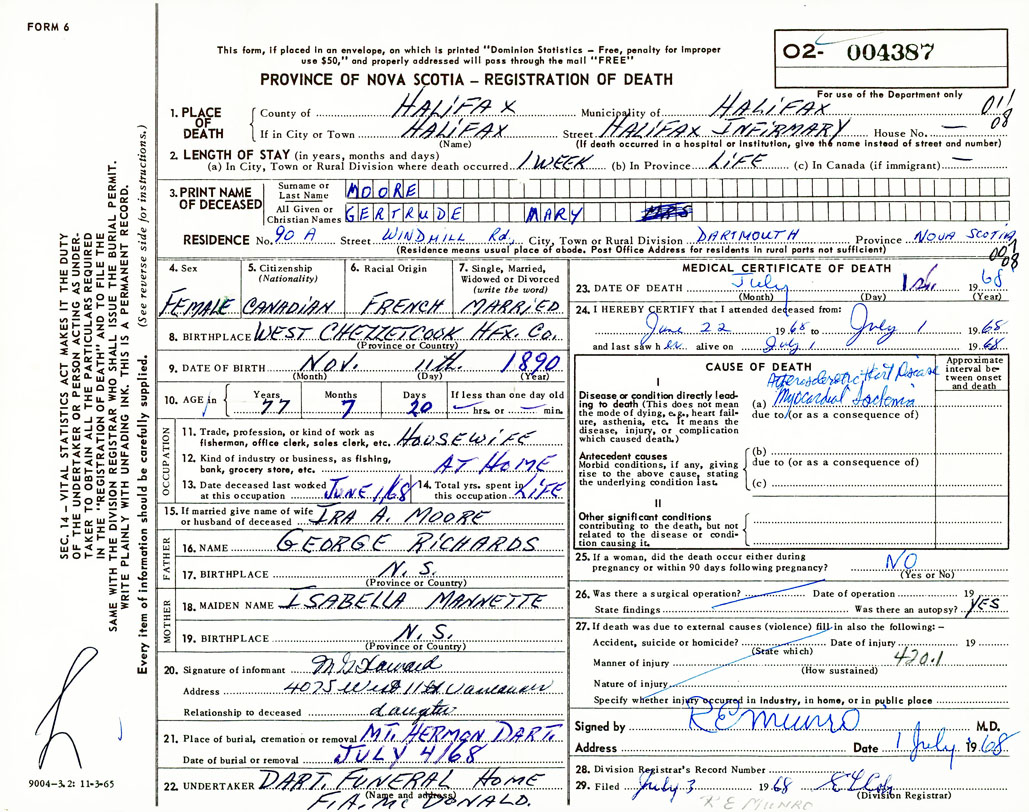 FORM 6
This form, if placed in an envelope, on which is printed "Dominion Statistics – Free, penalty for improper
use $50," and properly addressed will pass through the mail "FREE"
PROVINCE OF NOVA SCOTIA – REGISTRATION OF DEATH
O2- 004387
For use of the Department only
1. PLACE OF DEATH
County of HALIFAX Municipality of HALIFAX 011
If in City or Town HALIFAX Street HALIFAX INFIRMARY House No. — 08
(Name) (If death occurred in a hospital or institution, give the name instead of street and number)
2. LENGTH OF STAY (in years, months and days)
(a) In City, Town or Rural Division where death occurred 1 WEEK (b) In Province LIFE (c) In Canada (if immigrant) —
3. PRINT NAME OF DECEASED
Surname or Last Name MOORE
All Given or Christian Names GERTRUDE MARY MRS
RESIDENCE No. 90 A Street WINDMILL Rd, City, Town or Rural Division DARTMOUTH Province NOVA SCOTIA
(Residence means usual place of abode. Post Office Address for residents in rural parts not sufficient)
4. Sex FEMALE
5. Citizenship (Nationality) CANADIAN
6. Racial Origin FRENCH
7. Single, Married, Widowed or Divorced (write the word) MARRIED
8. BIRTHPLACE WEST CHEZZETCOOK HFX. CO.
(Province or Country)
9. DATE OF BIRTH NOV. 11th. 1890
(Month) (Day) (Year)
10. AGE in Years 77 Months 7 Days 20 If less than one day old — hrs. or — min.
OCCUPATION
11. Trade, profession, or kind of work as fisherman, office clerk, sales clerk, etc. HOUSEWIFE
12. Kind of industry or business, as fishing, bank, grocery store, etc. AT HOME
13. Date deceased last worked at this occupation JUNE 1/68 14. Total yrs. spent in this occupation LIFE
15. If married give name of wife or husband of deceased IRA A. MOORE
FATHER
16. NAME GEORGE RICHARDS
17. BIRTHPLACE N. S.
(Province or Country)
MOTHER
18. MAIDEN NAME ISABELLA MANNETTE
19. BIRTHPLACE N. S.
(Province or Country)
20. Signature of informant Howard
Address 4075 West 11th Vancouver
Relationship to deceased daughter
21. Place of burial, cremation or removal MT. HERMON DART.
Date of burial or removal JULY 4/68
22. UNDERTAKER DART. FUNERAL HOME
(Name and address) McDONALD.
MEDICAL CERTIFICATE OF DEATH
23. DATE OF DEATH July 1st 1968
(Month) (Day) (Year)
24. I HEREBY CERTIFY that I attended deceased from:
June 22 1968 to July 1 1968
and last saw her alive on July 1 1968
CAUSE OF DEATH
Approximate interval between onset and death
I
Disease or condition directly leading to death (This does not mean the mode of dying, e.g., heart failure, asthenia, etc. It means the disease, injury, or complication which caused death.)
Atherosclerotic Heart Disease
(a) Myocardial Ischemia
due to (or as a consequence of)
Antecedent causes
Morbid conditions, if any, giving rise to the above cause, stating the underlying condition last.
(b)
due to (or as a consequence of)
(c)
II
Other significant conditions
contributing to the death, but not related to the disease or condition causing it.
25. If a woman, did the death occur either during pregnancy or within 90 days following pregnancy? NO
(Yes or No)
26. Was there a surgical operation? Date of operation 19
State findings Was there an autopsy? YES
27. If death was due to external causes (violence) fill in also the following: –
Accident, suicide or homicide? Date of injury 19
(State which)
Manner of injury 420.1
(How sustained)
Nature of injury
Specify whether injury occurred in Industry, in home, or in public place
Signed by R E Munro M.D.
Address Date 1 July 1968
28. Division Registrar's Record Number
29. Filed July 3 1968
(Division Registrar)
R E MUNRO
SEC. 14 – VITAL STATISTICS ACT MAKES IT THE DUTY
OF THE UNDERTAKER OR PERSON ACTING AS UNDER-
TAKER TO OBTAIN ALL THE PARTICULARS REQUIRED
IN THE "REGISTRATION OF DEATH" AND TO FILE THE
SAME WITH THE DIVISION REGISTRAR WHO SHALL ISSUE THE BURIAL PERMIT.
WRITE PLAINLY WITH UNFADING INK. THIS IS A PERMANENT RECORD.
Every item of information should be carefully supplied. (See reverse side for instructions.)
9004-3.2: 11-3-65